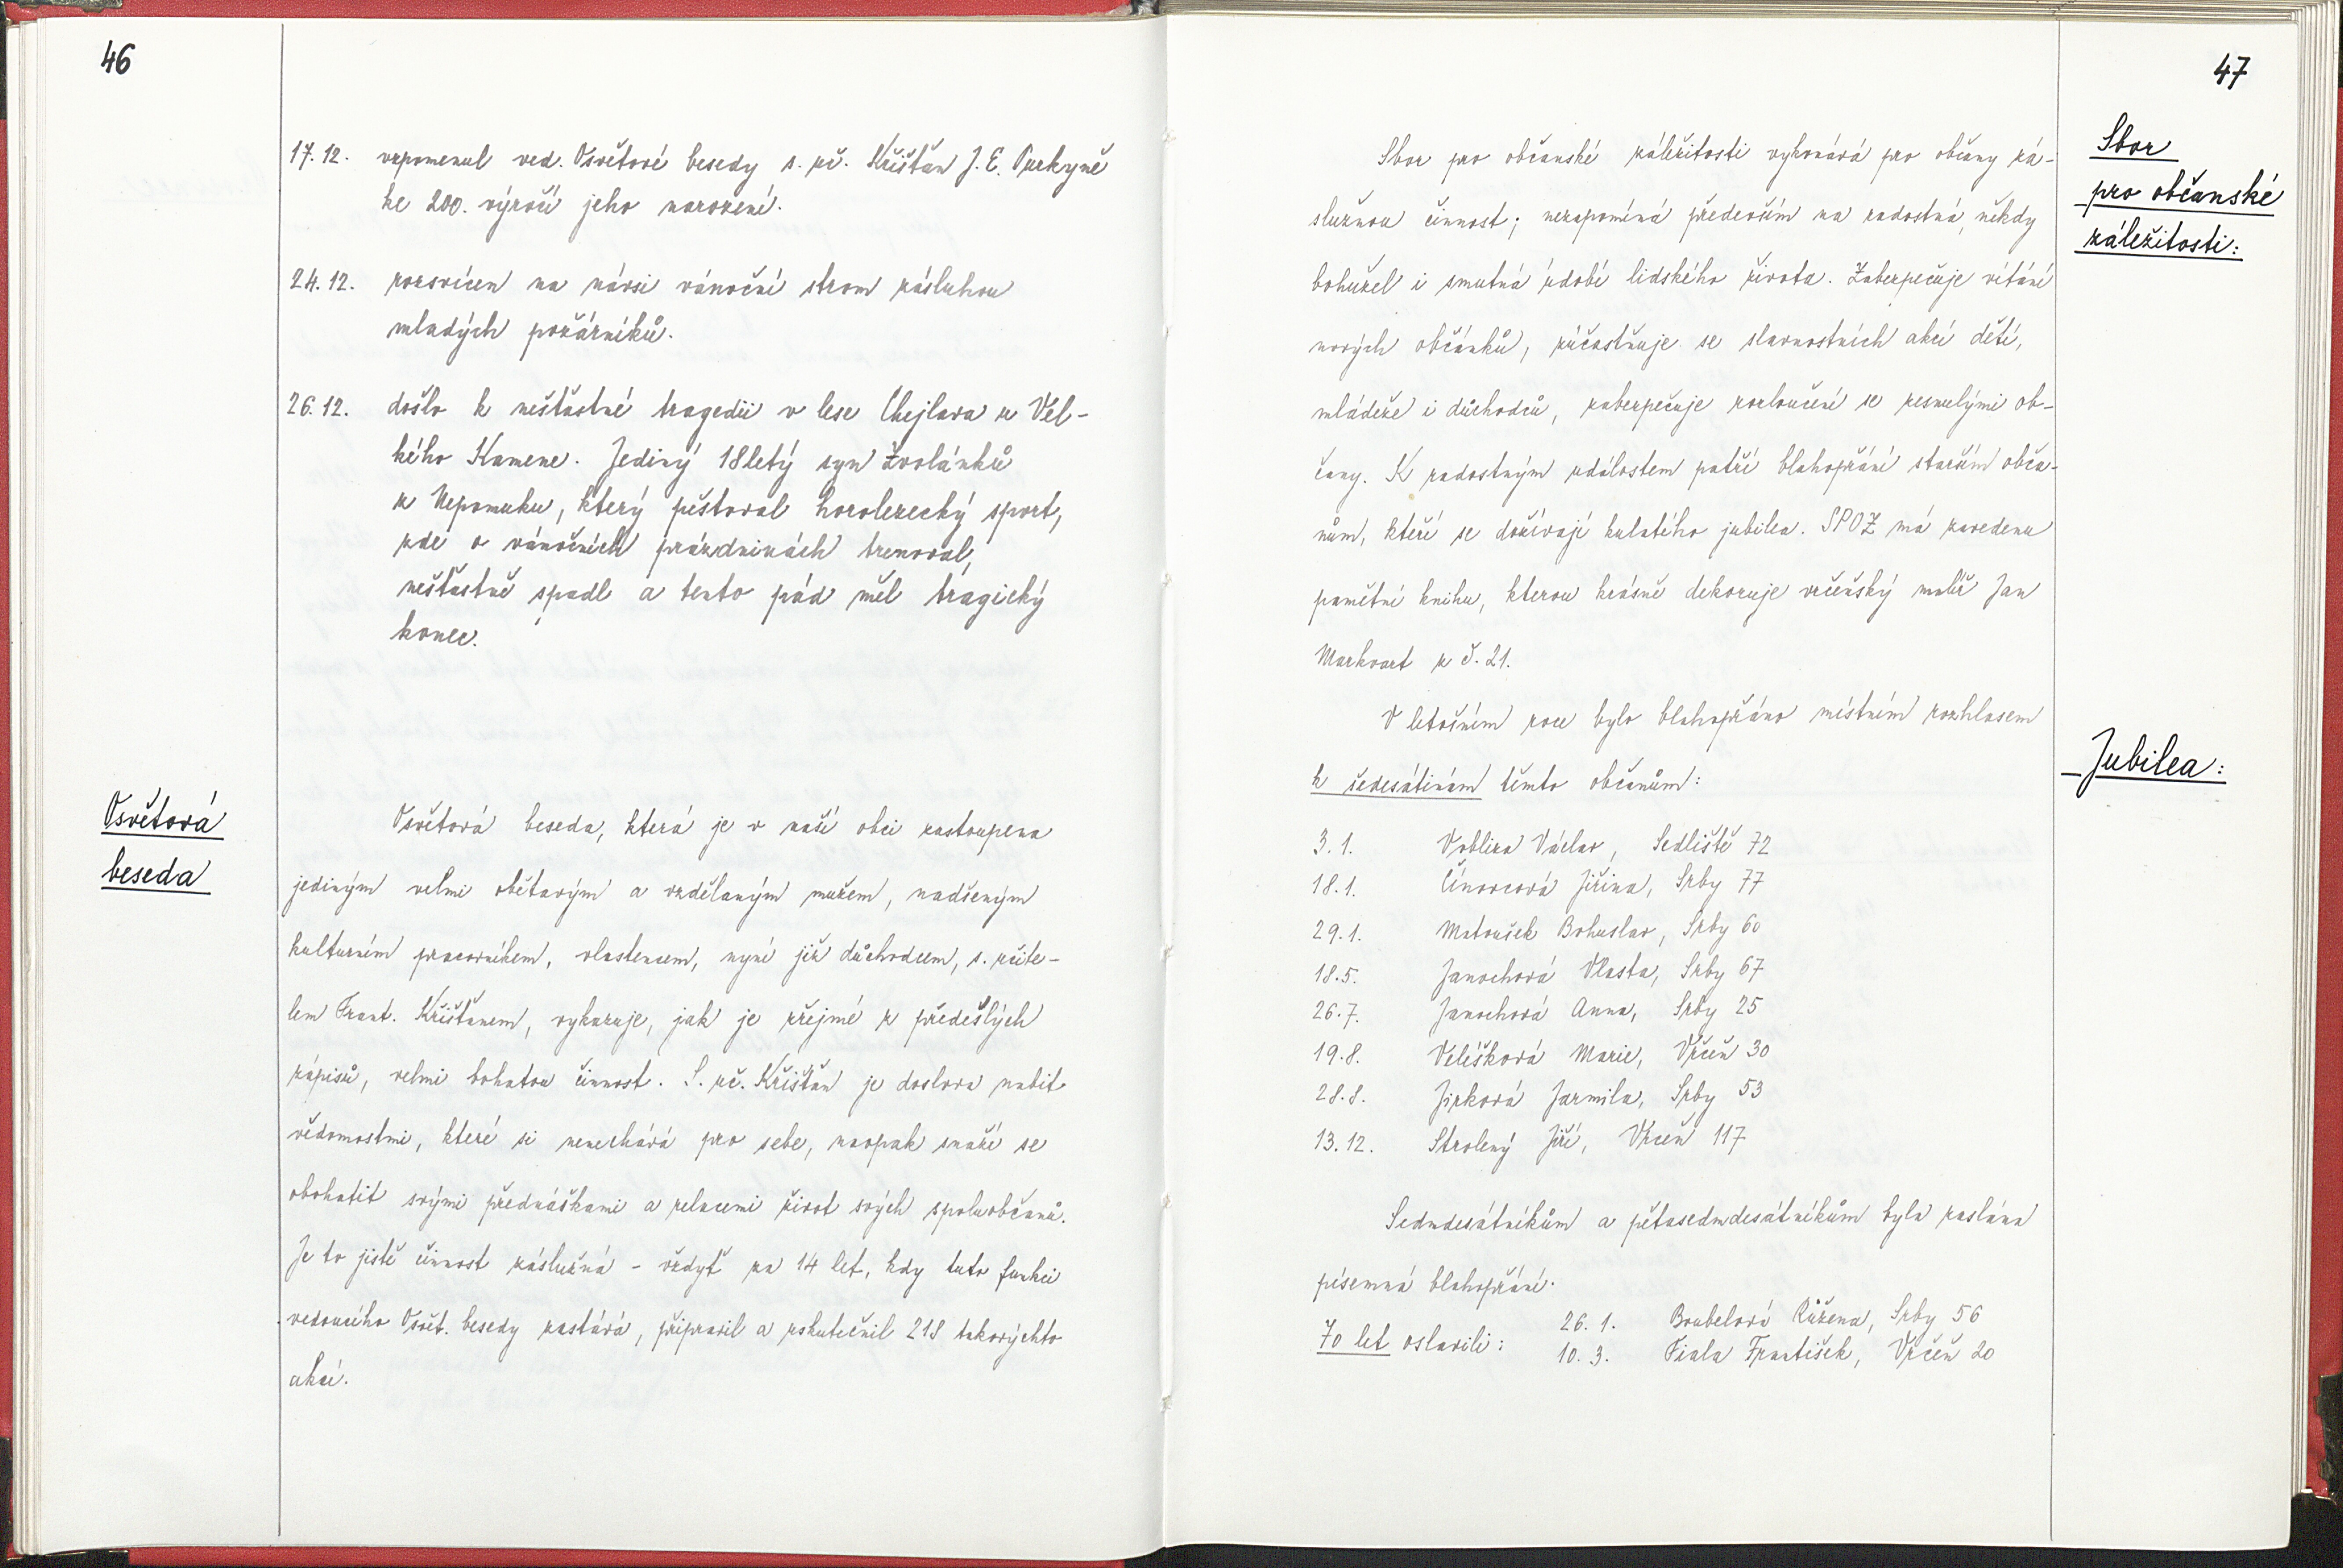 46
17.12. vzpomenul ved. Osvětové besedy s. uč. Křišťan J. E. Purkyně
ke 200. výročí jeho narození.
24.12. rozsvícen na návsi vánoční strom zásluhou
mladých požárníků.
26.12. došlo k nešťastné tragedii v lese Chejlava u Vel-
kého Kamene. Jediný 18letý syn Zvolánků
z Nepomuku, který pěstoval horolezecký sport,
zde o vánočních prázdninách trenoval,
nešťastně spadl a tento pád měl tragický
konec.
Osvětová
beseda
Osvětová beseda, která je v naší obci zastoupena
jediným velmi obětavým a vzdělaným mužem, nadšeným
kulturním pracovníkem, vlastencem, nyní již důchodcem, s. učite-
lem Frant. Křišťanem, vykazuje, jak je zřejmé z předešlých
zápisů, velmi bohatou činnost. S. uč. Křišťan je doslova nabit
vědomostmi, které si nenechává pro sebe, naopak snaží se
obohatit svými přednáškami a relacemi život svých spoluobčanů.
Je to jistě činnost záslužná - vždyť za 14 let, kdy tuto funkci
vedoucího Osvět. besedy zastává, připravil a uskutečnil 218 takovýchto
akcí.
47
Sbor
pro občanské
záležitosti:
Sbor pro občanské záležitosti vykonává pro občany zá-
služnou činnost; nezapomíná především na radostná, někdy
bohužel i smutná údobí lidského života. Zabezpečuje vítání
nových občánků, zúčastňuje se slavnostních akcí dětí,
mládeže i důchodců, zabezpečuje rozloučení se zesnulými ob-
čany. K radostným událostem patří blahopřání starším obča-
nům, kteří se dožívají kulatého jubilea. SPOZ má zavedenu
pamětní knihu, kterou krásně dekoruje vrčeňský malíř Jan
Markvart z č. 21.
Jubilea:
V letošním roce bylo blahopřáno místním rozhlasem
k šedesátinám těmto občanům:
3. 1. Vobliza Václav, Sedliště 72
18. 1. Čínovcová Jiřina, Srby 77
29. 1. Matoušek Bohuslav, Srby 60
18. 5. Janochová Vlasta, Srby 67
26. 7. Janochová Anna, Srby 25
19. 8. Velíšková Marie, Vrčeň 30
28. 8. Jirková Jarmila, Srby 53
13. 12. Strolený Jiří, Vrčeň 117
Sedmdesátníkům a pětasedmdesátníkům byla zaslána
písemná blahopřání.
70 let oslavili: 26. 1. Boubelová Růžena, Srby 56
10. 3. Fiala František, Vrčeň 20